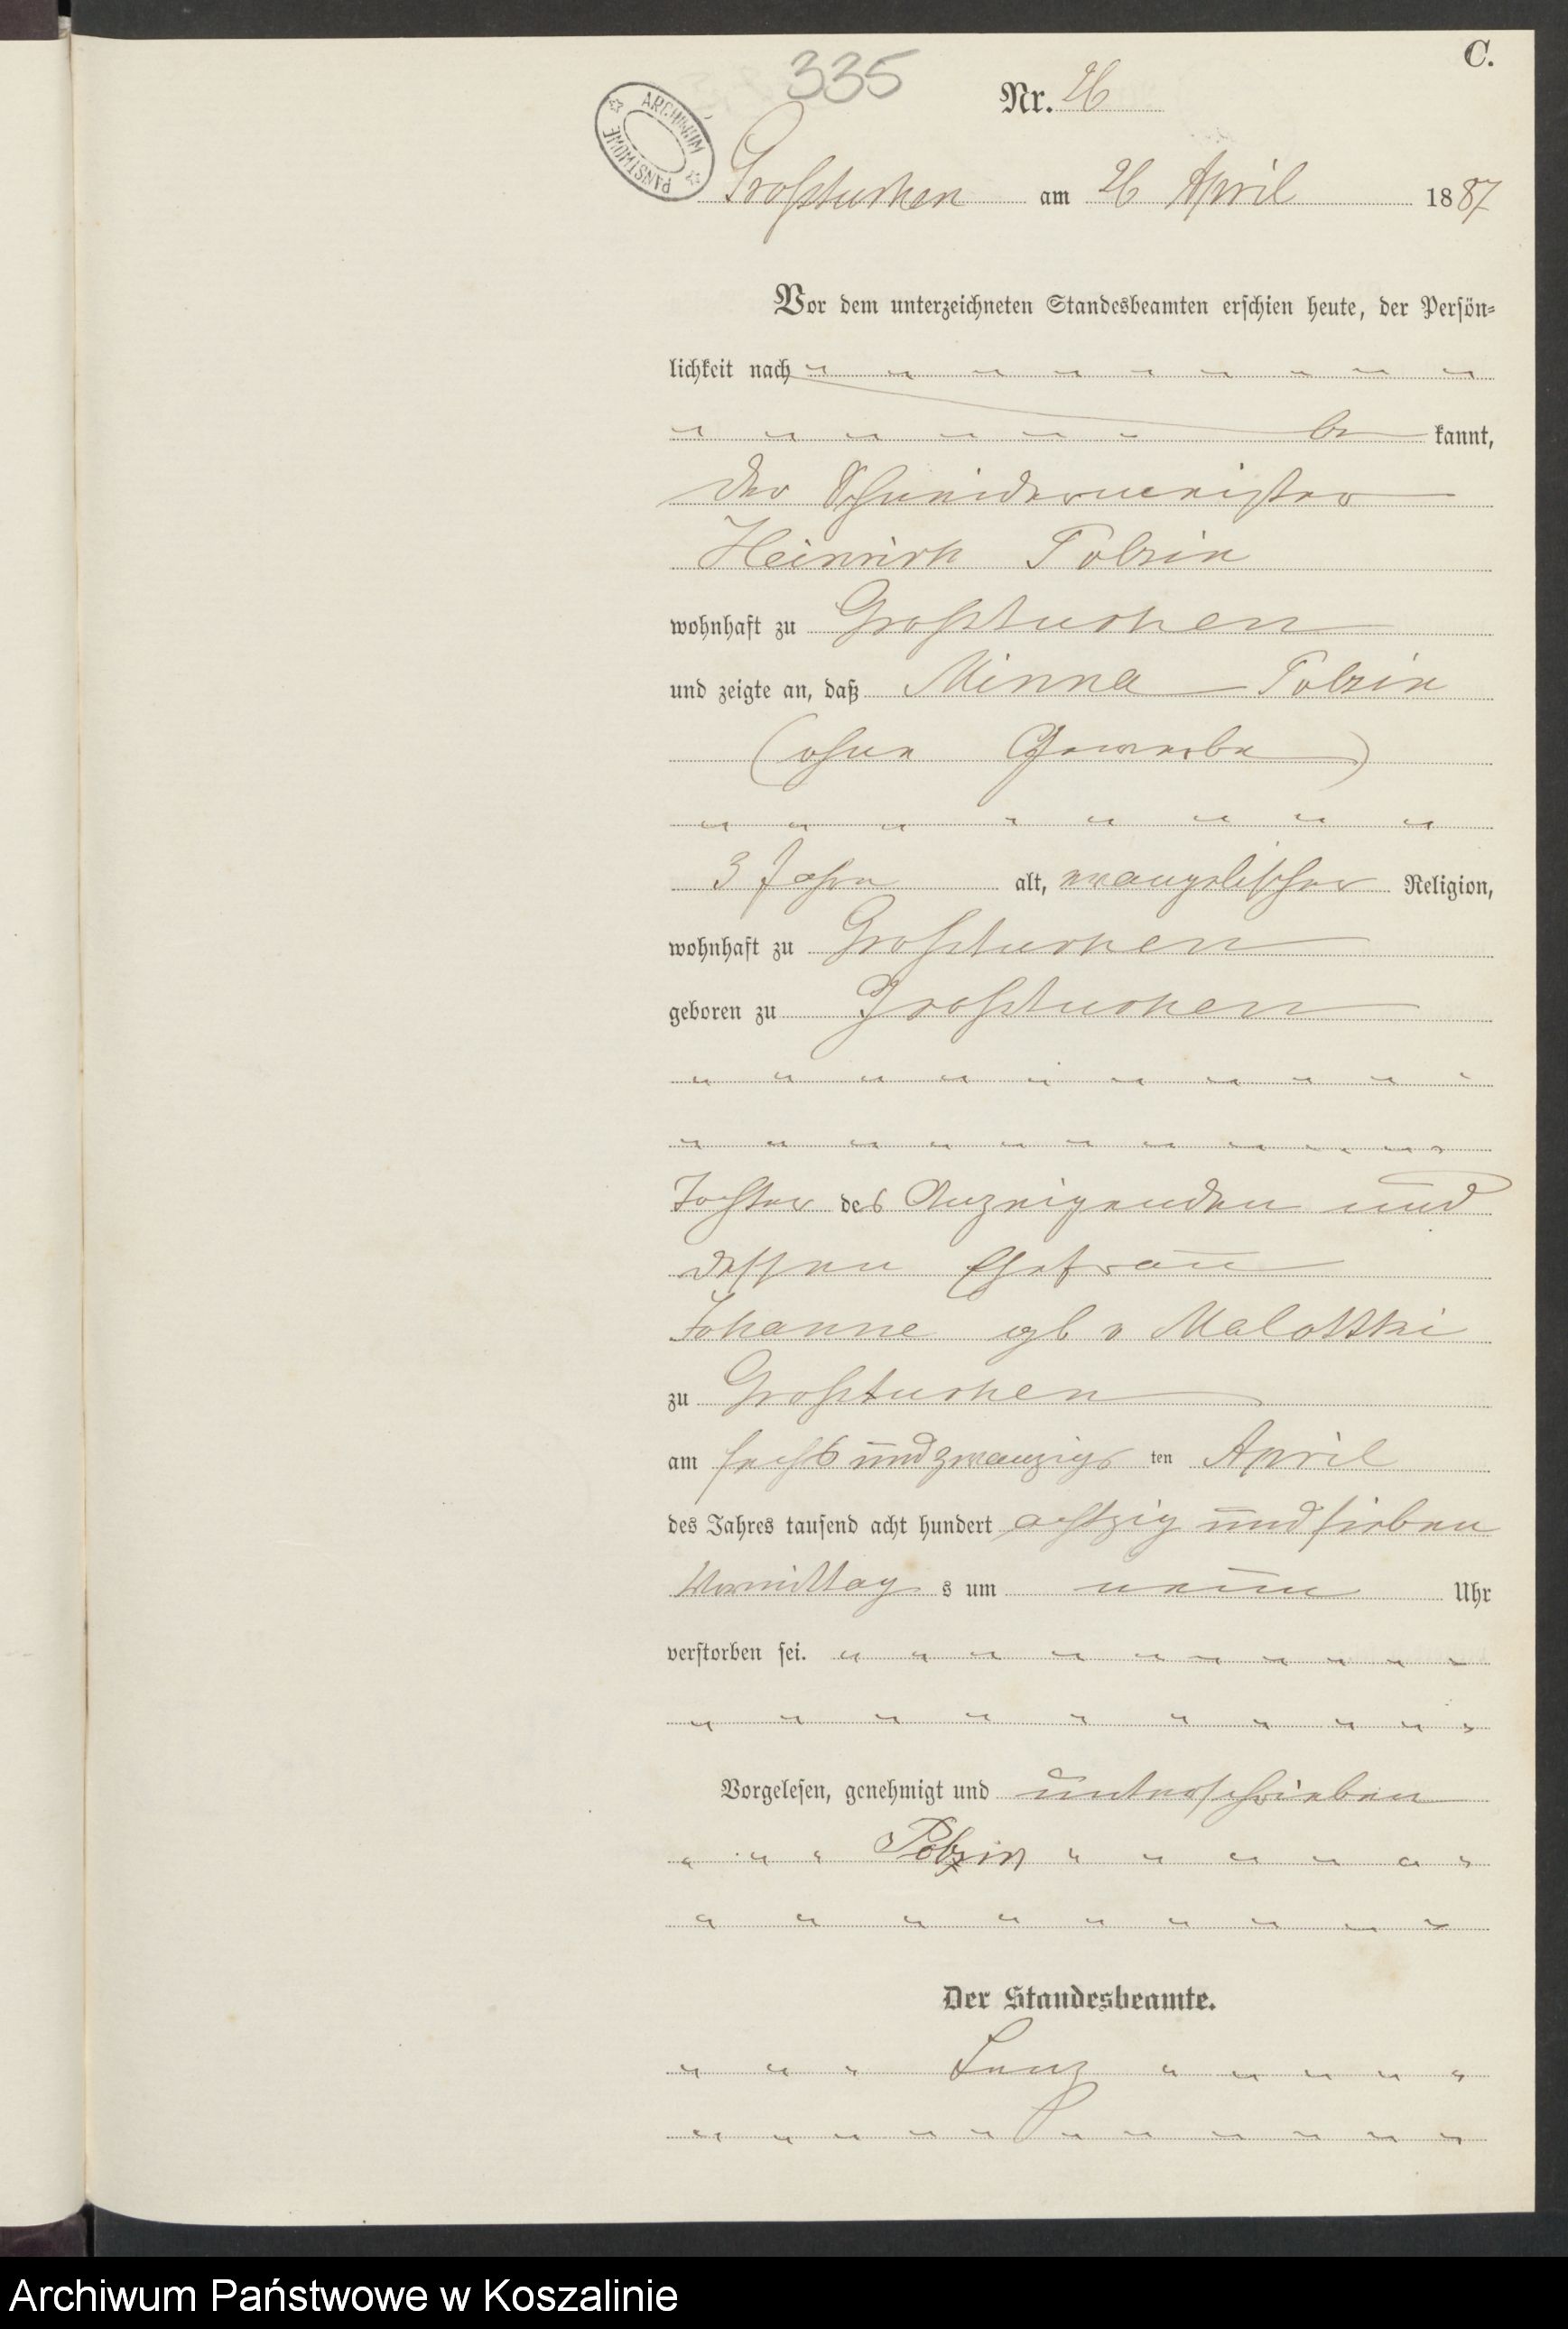 C.
335
Nr. 26
ARCHIWUM PAŃSTWOWE
Großtuchen am 26 April 1887
Vor dem unterzeichneten Standesbeamten erschien heute, der Persön-
lichkeit nach
be kannt,
der Schneidermeister
Heinrich Polzin
wohnhaft zu Großtuchen
und zeigte an, daß Minna Polzin
(ohne Gewerbe)
3 Jahre alt, evangelischer Religion,
wohnhaft zu Großtuchen
geboren zu Großtuchen
Tochter des Anzeigenden und
dessen Ehefrau
Johanne geb v Malottki
zu Großtuchen
am sechs und zwanzigs ten April
des Jahres tausend acht hundert achtzig und sieben
Vormittag s um neun Uhr
verstorben sei.
Vorgelesen, genehmigt und unterschrieben
Polzin
Der Standesbeamte.
Archiwum Państwowe w Koszalinie